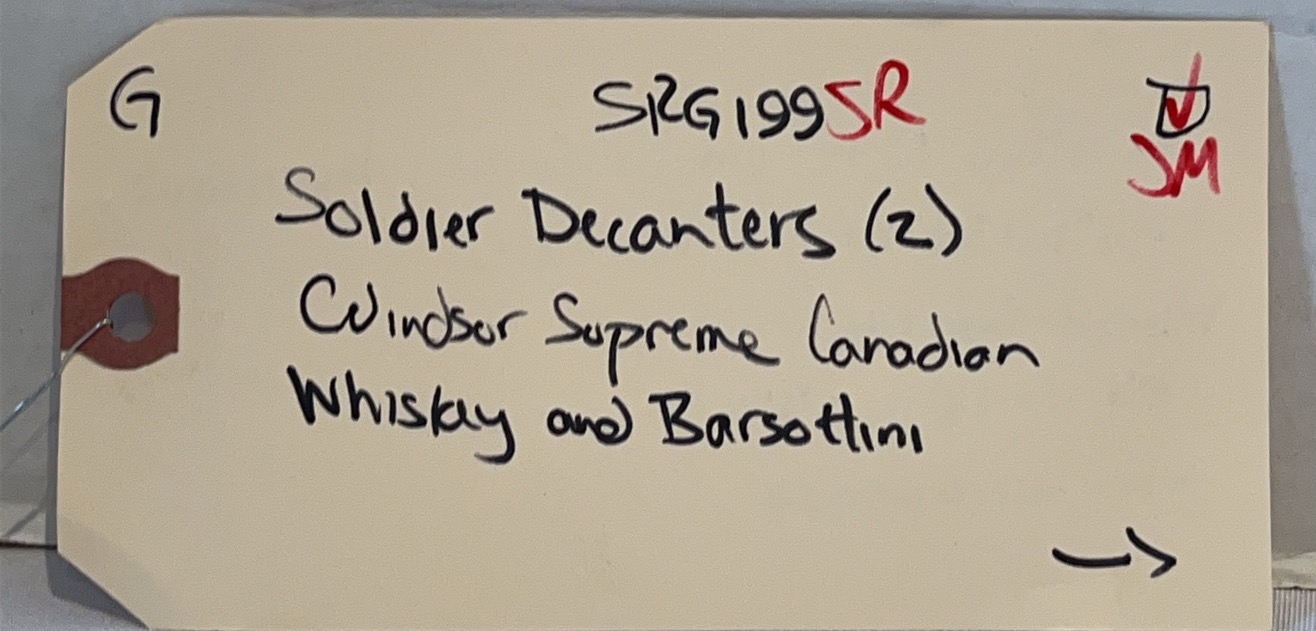 G SRG199SR ☑
JM
Soldier Decanters (2)
Windsor Supreme Canadian
Whisky and Barsottini
→